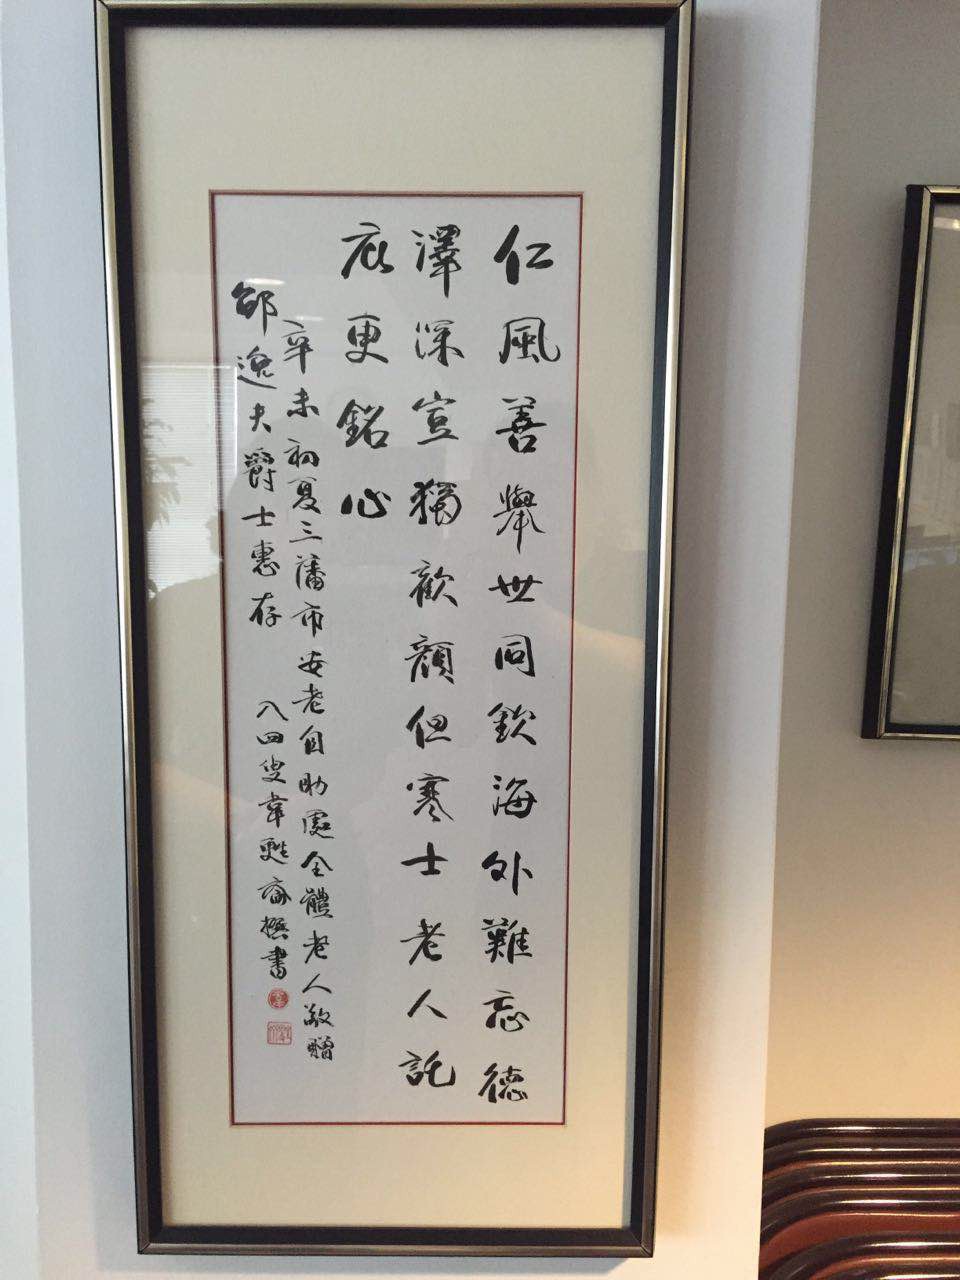 仁風善舉世同欽海外難忘德
澤深豈獨歡顏但寒士老人託
庇更銘心
辛未初夏三藩市安老自助處全體老人敬贈
邵逸夫爵士惠存
八四叟韋甦齋撰書